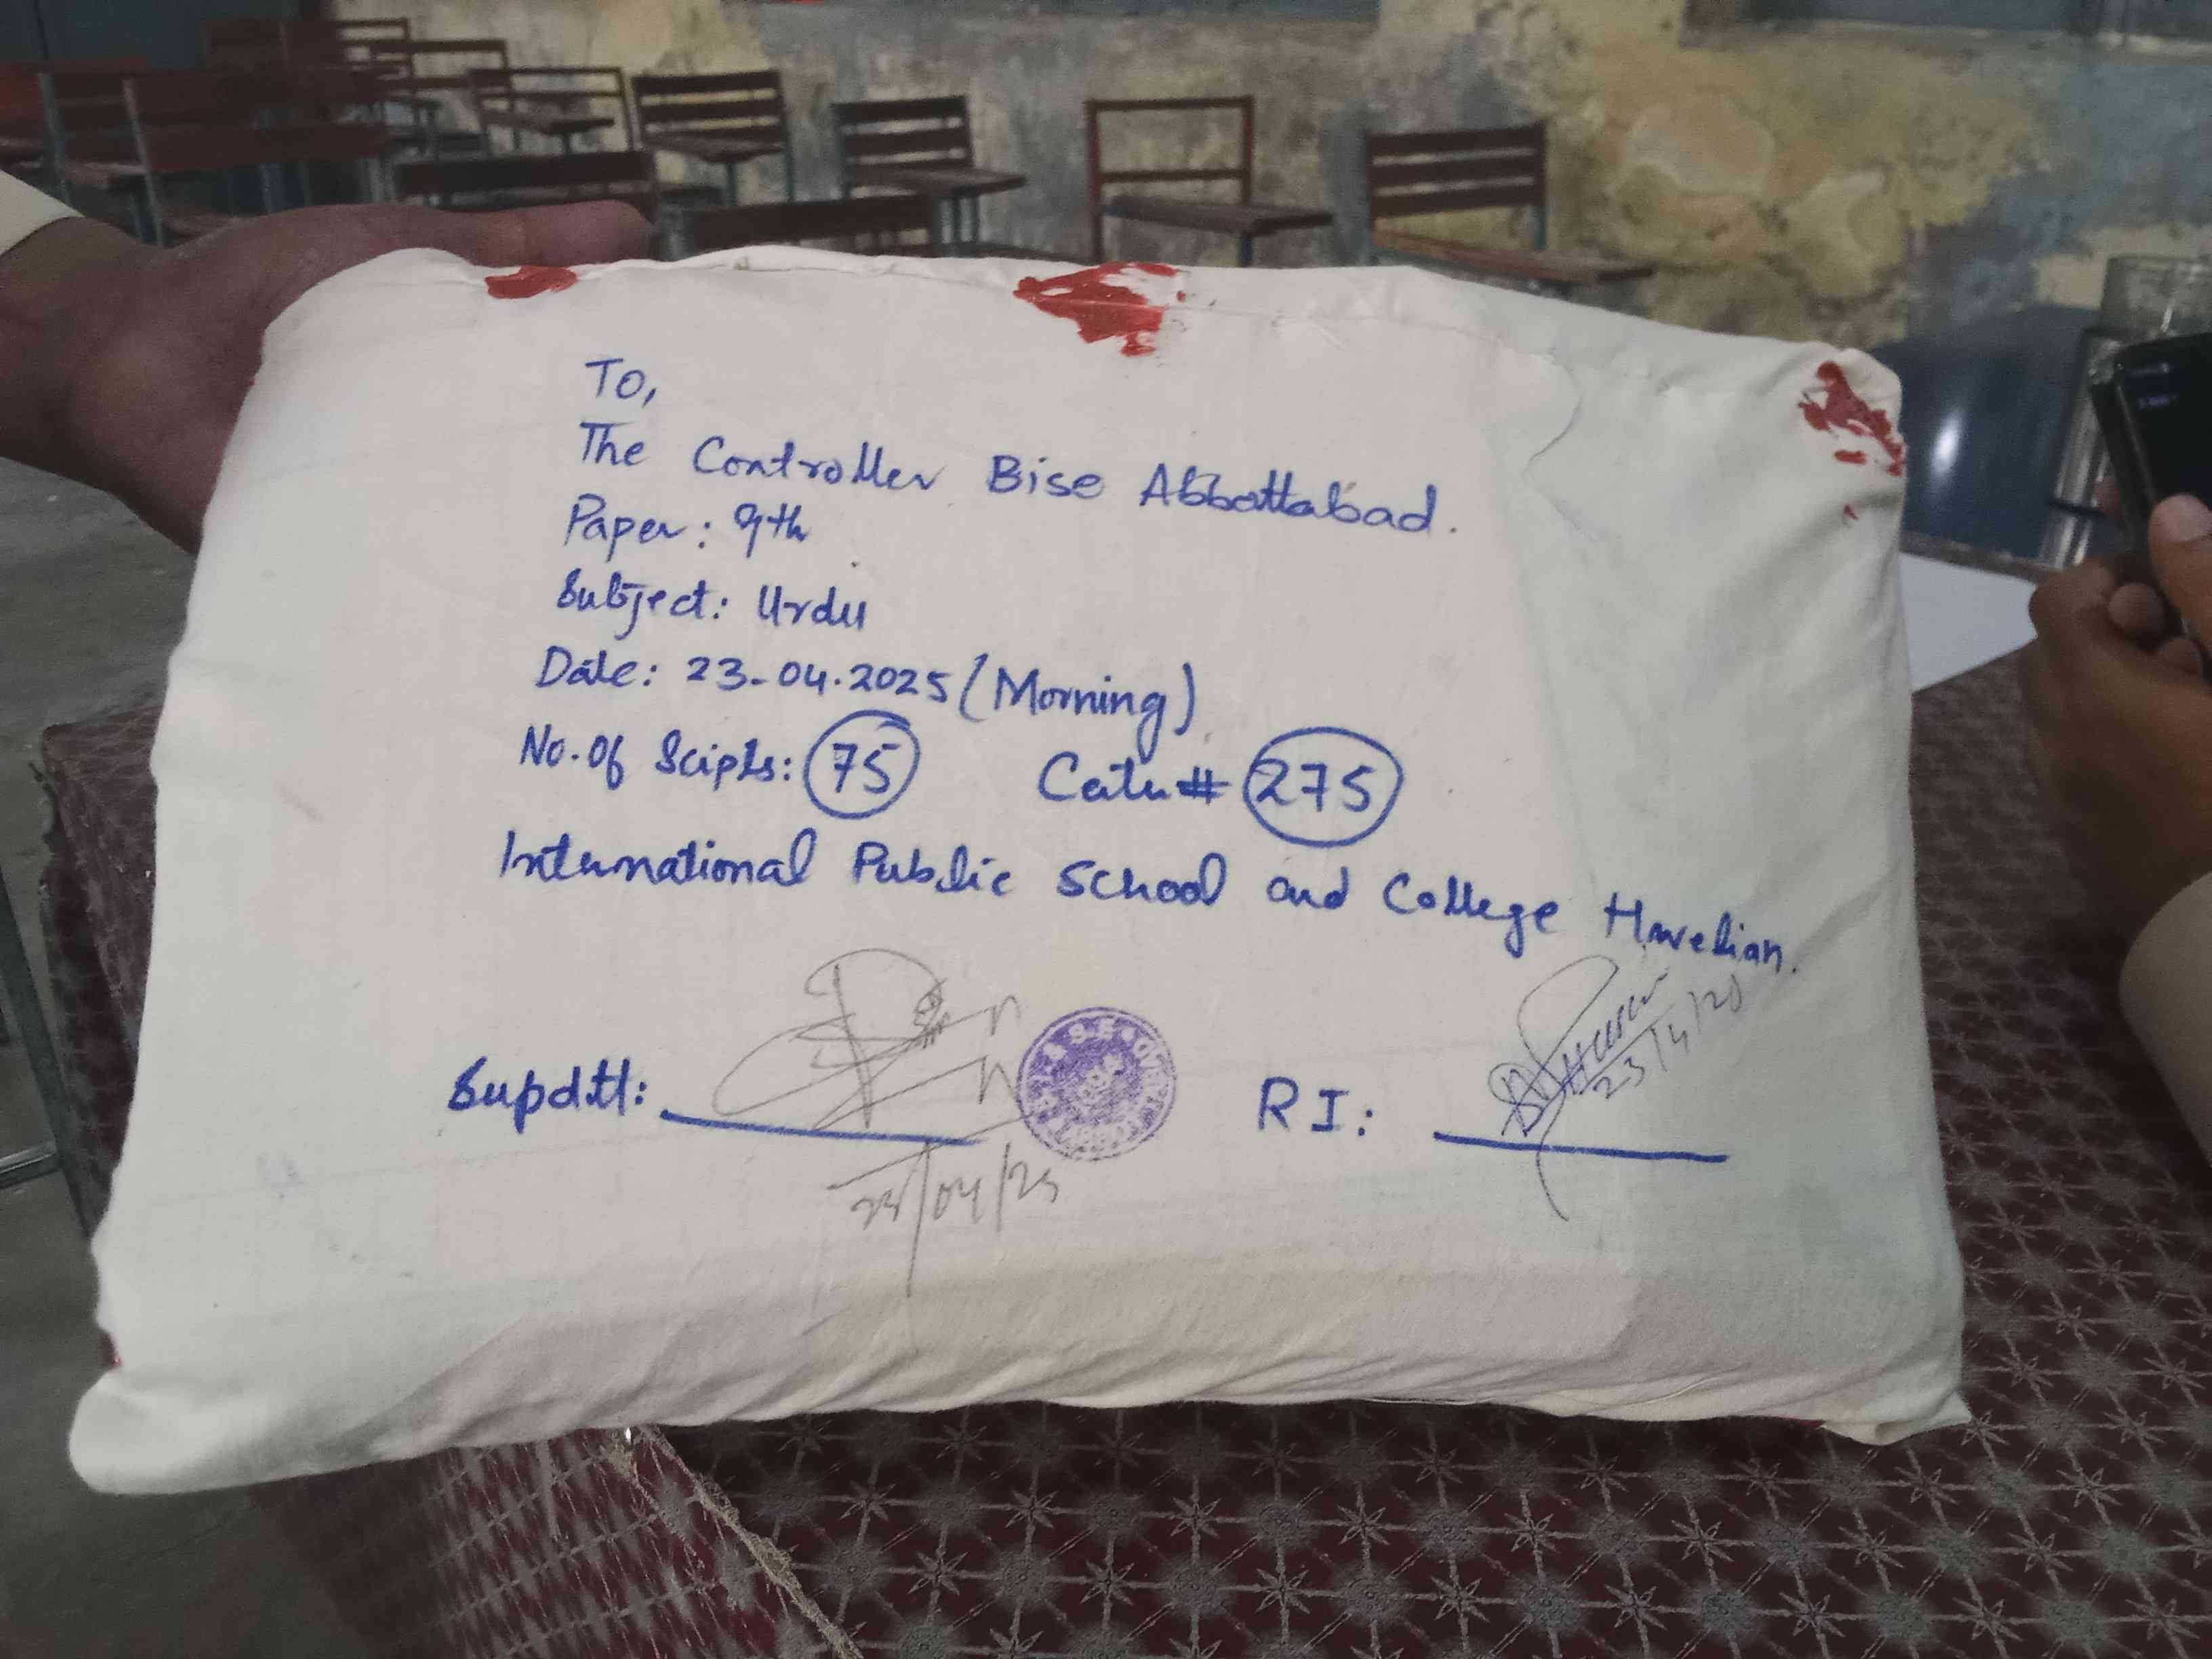 To,
The Controller Bise Abbottabad.
Paper: 9th
Subject: Urdu
Date: 23-04.2025 (Morning)
No. Of Scipts: 75 Cater# 275
International Public School and College Havelian.
Supdtt: RI:
23/04/25